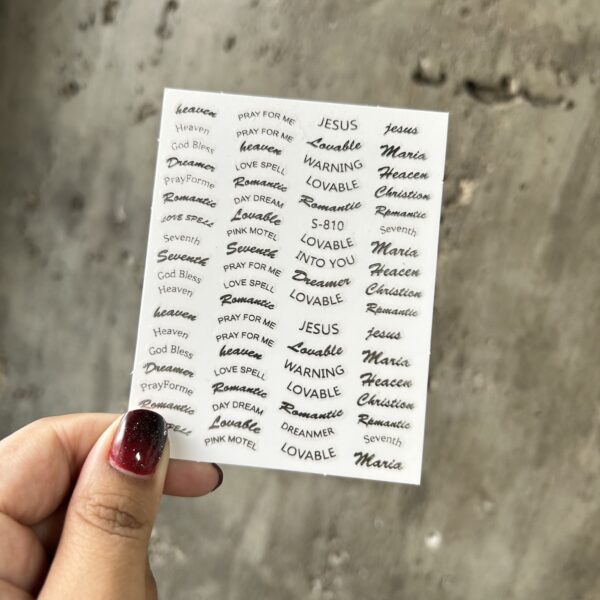 heaven
Heaven
God Bless
Dreamer
PrayForme
Romantic
LOVE SPELL
Seventh
Seventh
God Bless
Heaven
heaven
Heaven
God Bless
Dreamer
PrayForme
Romantic
SPELL
PRAY FOR ME
PRAY FOR ME
heaven
LOVE SPELL
Romantic
DAY DREAM
Lovable
PINK MOTEL
Seventh
PRAY FOR ME
LOVE SPELL
Romantic
PRAY FOR ME
PRAY FOR ME
heaven
LOVE SPELL
Romantic
DAY DREAM
Lovable
PINK MOTEL
JESUS
Lovable
WARNING
LOVABLE
Romantic
S-810
LOVABLE
INTO YOU
Dreamer
LOVABLE
JESUS
Lovable
WARNING
LOVABLE
Romantic
DREANMER
LOVABLE
jesus
Maria
Heacen
Christion
Rpmantic
Seventh
Maria
Heacen
Christion
Rpmantic
jesus
Maria
Heacen
Christion
Rpmantic
Seventh
Maria